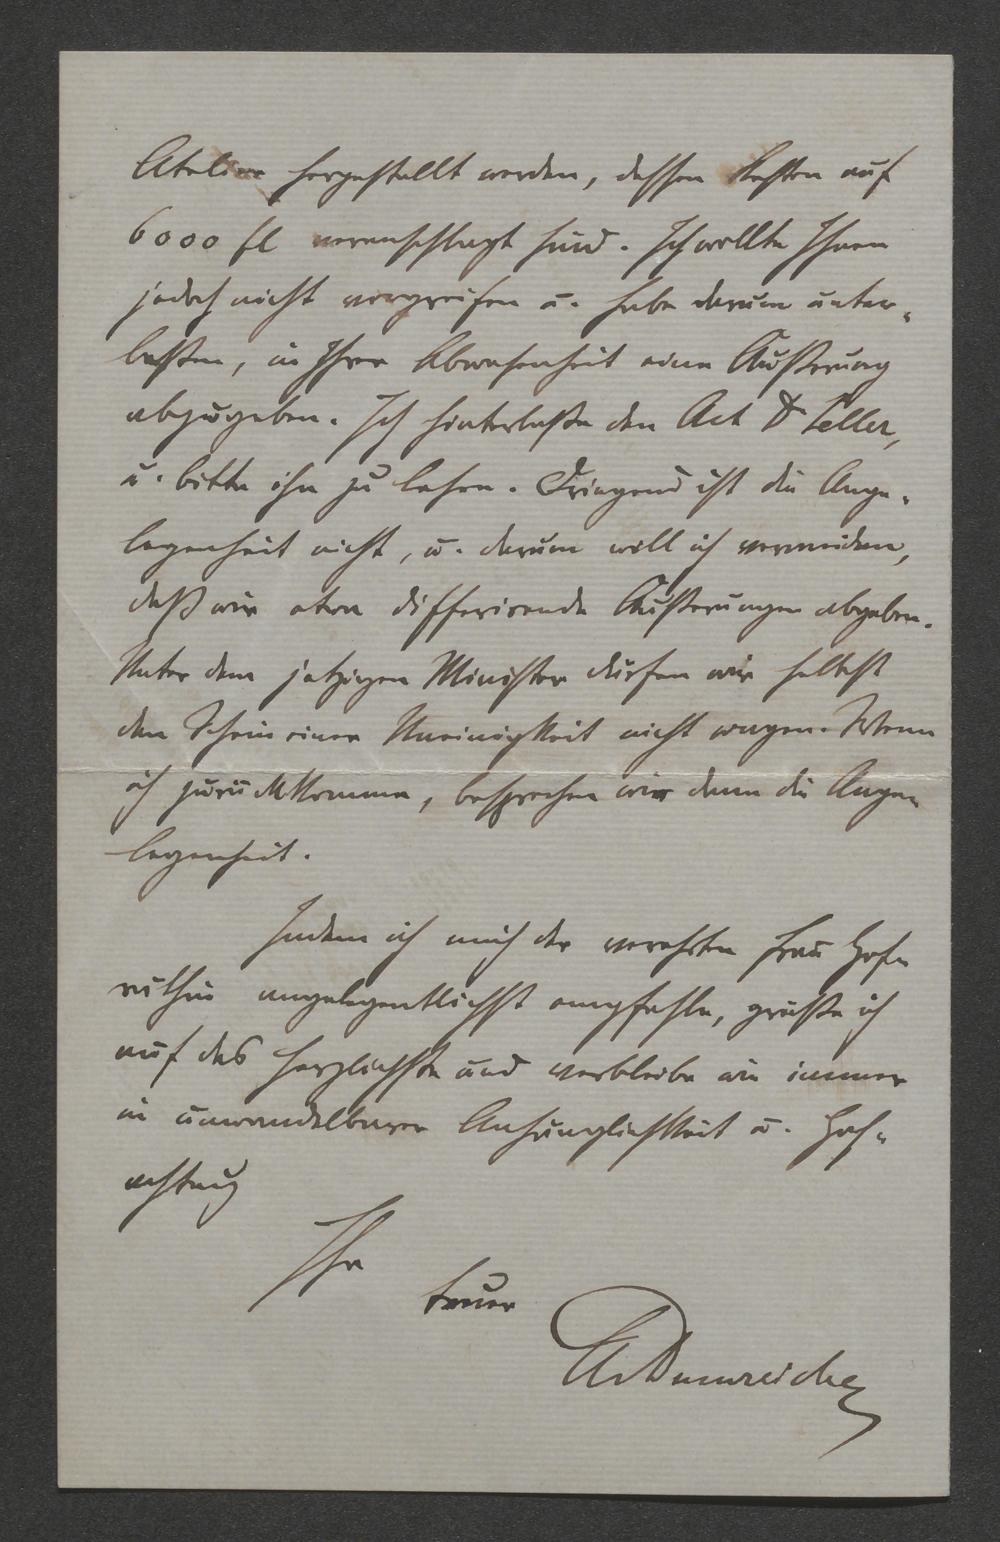 Atelier hergestellt werden, dessen Kosten auf
6000 fl veranschlagt sind. Ich wollte Ihnen
jedoch nicht vorgreifen u. habe darum unter-
lassen, in Ihrer Abwesenheit eine Äußerung
abzugeben. Ich hinterlasse den Act Dr Zeller,
u. bitte ihn zu lesen. Dringend ist die Ange-
legenheit nicht, u. darum will ich vermeiden,
daß wir etwa differirende Äußerungen abgeben.
Unter dem jetzigen Minister dürfen wir selbst
den Schein einer Uneinigkeit nicht wagen. Wenn
ich zurückkomme, besprechen wir dann die Ange-
legenheit.
Indem ich mich der verehrten Frau Hof-
räthin angelegentlichst empfehle, grüße ich
auf das herzlichste und verbleibe wie immer
in unwandelbarer Anhänglichkeit u. Hoch-
achtung
Ihr
treuer
AvDumreicher